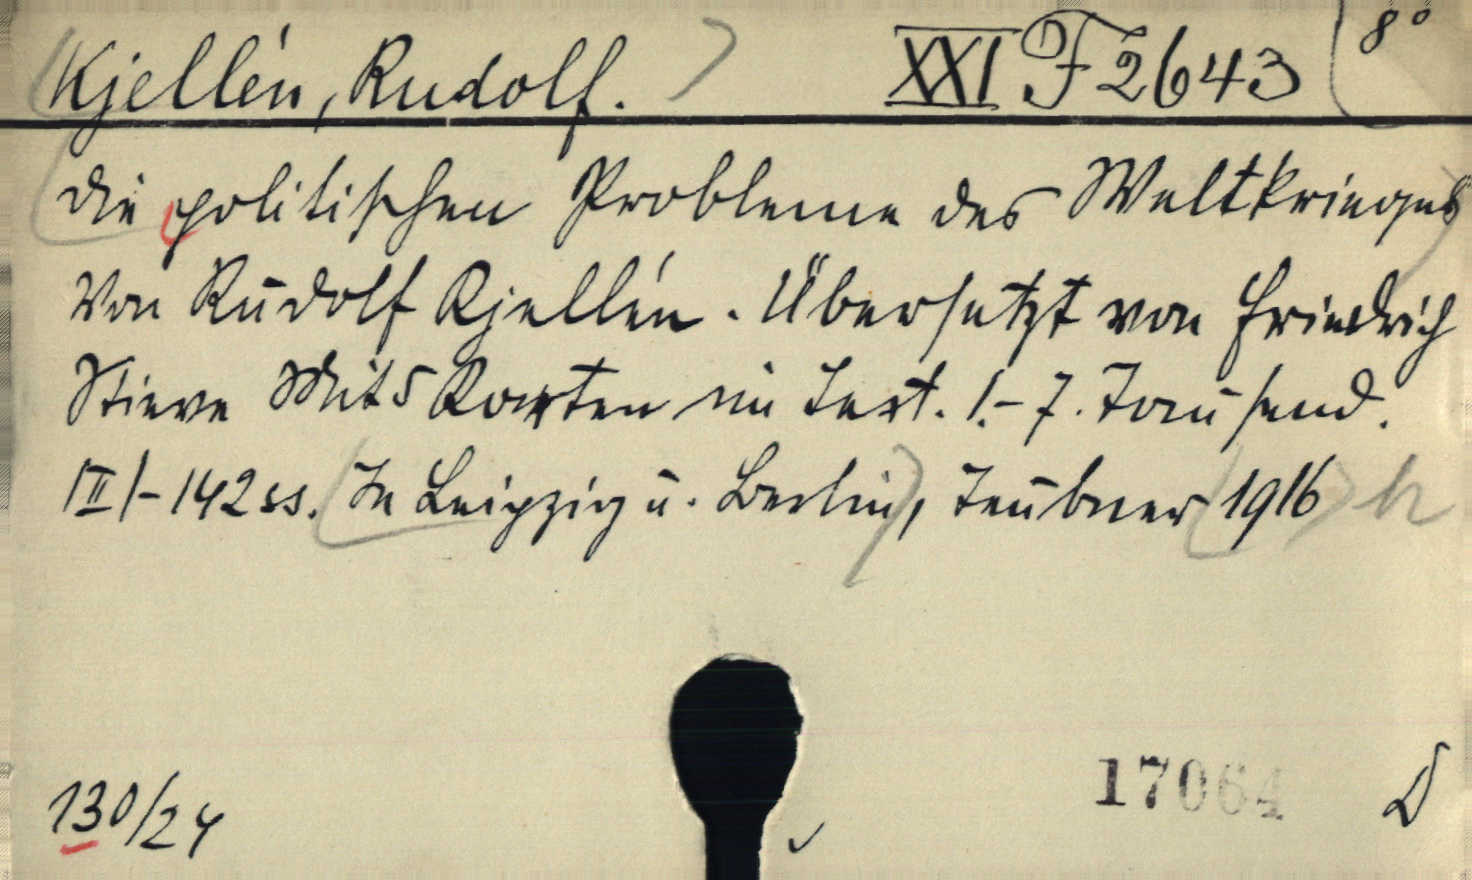 Kjellén, Rudolf. XXI F 2643 8°
Die politischen Probleme des Weltkrieges
Von Rudolf Kjellén. Übersetzt von Friedrich
Stieve Mit 5 Karten im Text. 1.-7. Tausend.
|II|-142 ss. In Leipzig u. Berlin, Teubner 1916
130/24 17064 D